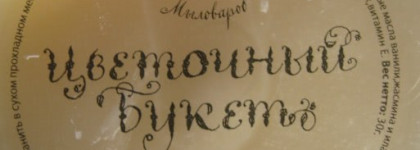 Мыловаров
Цветочный
Букетъ
анить в сухом прохладном ме
ие масла ванили, жасмина и ила
витамин Е. Вес нетто: 30г